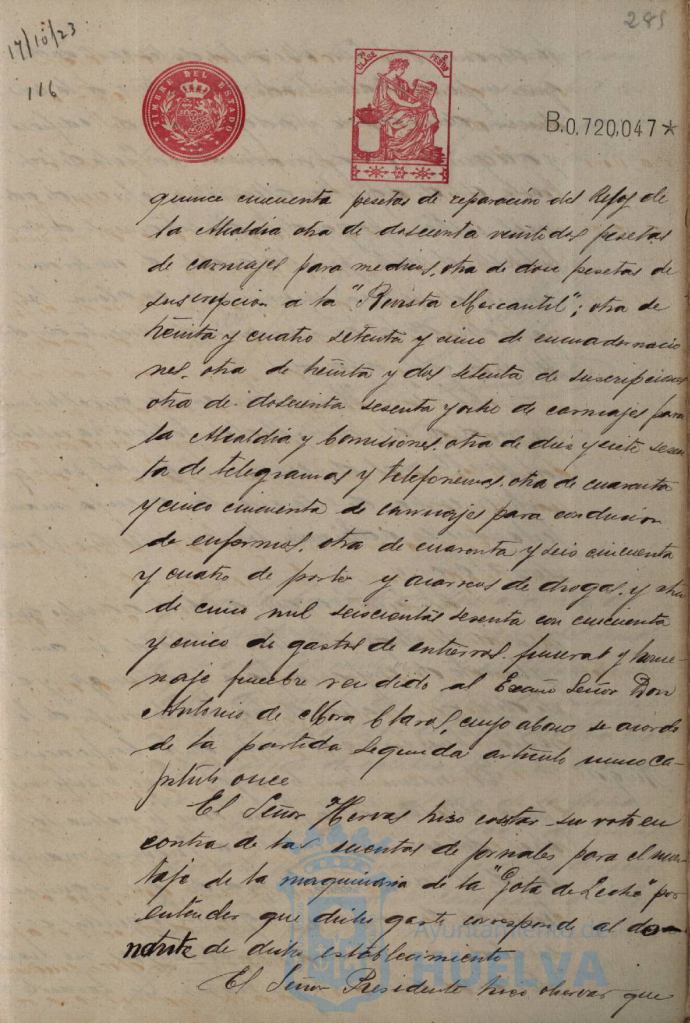 285
17/10/23
116
TIMBRE DEL ESTADO
7ª CLASE
B.0,720,047*
quince cincuenta pesetas de reparación del Reloj de
la Alcaldía otra de doscienta veintedos pesetas
de carruajes para medicos, otra de doce pesetas de
suscripción a la "Revista Mercantil"; otra de
treinta y cuatro setenta y cinco de encuadernacio
nes. otra de treinta y dos setenta de suscripciones
otra de doscienta sesenta y ocho de carruajes para
la Alcaldía y Comisiones. otra de diez y siete sesen
ta de telegramas y telefonemas. otra de cuarenta
y cinco cincuenta de carruajes para conducion
de enfermos. otra de cuarenta y seis cincuenta
y cuatro de porte y acarreos de drogas. y otra
de cinco mil seiscientas sesenta con cincuenta
y cinco de gastos de entierros. funeral y home
naje funebre rendido al Excmo Señor Don
Antonio de Mora Claros, cuyo abono se acordo
de la partida segunda artículo unico ca-
pitulo once
El Señor Hervas hizo costar su voto en
contra de las cuentas de jornales para el mon
taje de la maquinaria de la "Gota de Leche" por
entender que dicho gasto correspond al do-
nante de dicho establecimiento
El Señor Presidente hizo observar que
Ayuntamiento de
HUELVA